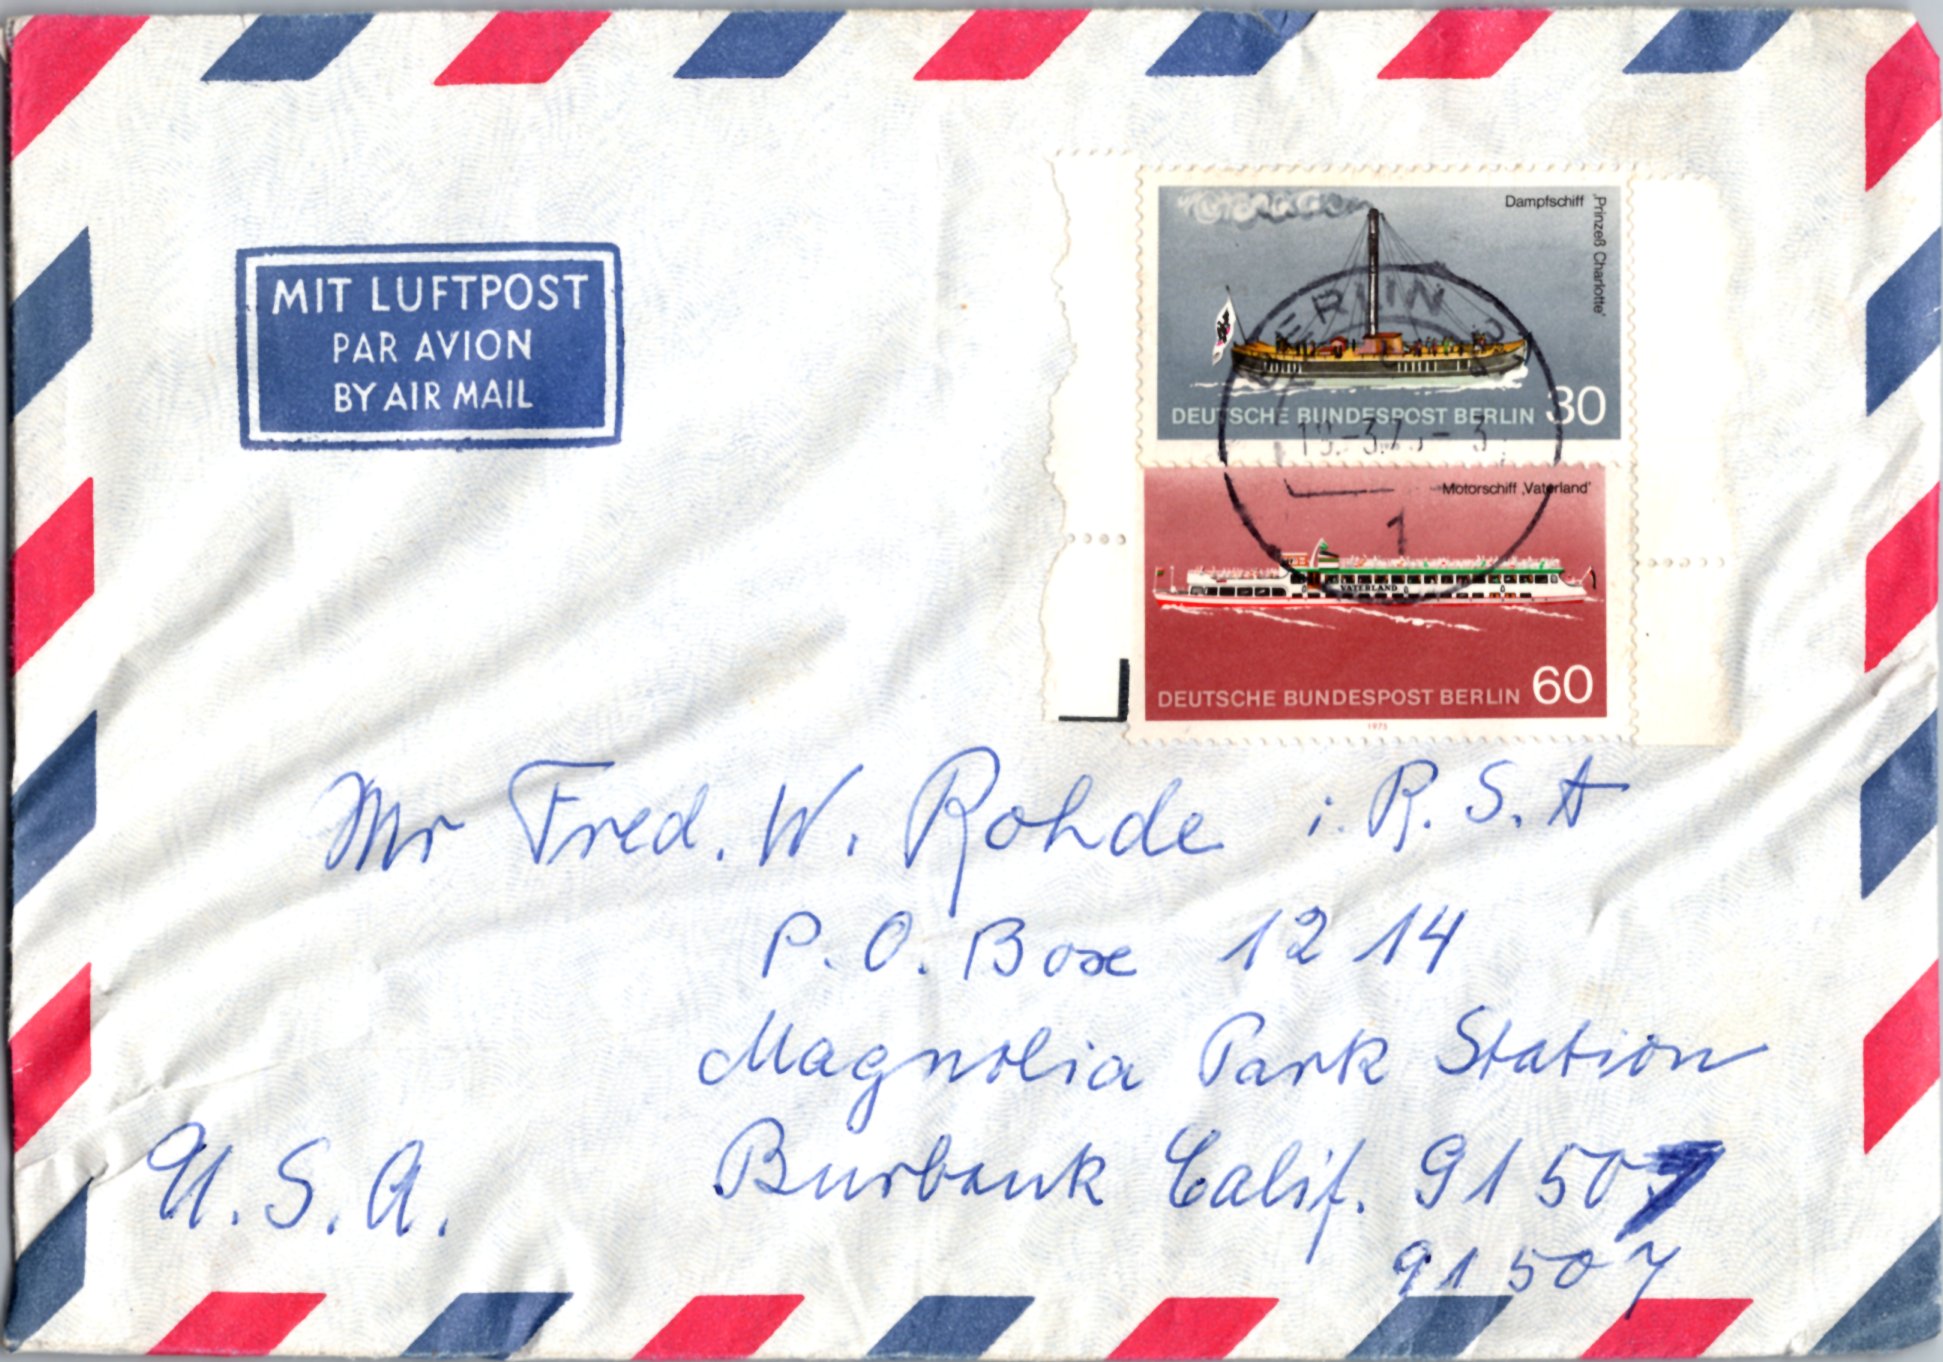 MIT LUFTPOST
PAR AVION
BY AIR MAIL
Dampfschiff
‚Prinzeß Charlotte'
BERLIN
DEUTSCHE BUNDESPOST BERLIN 30
Motorschiff ‚Vaterland'
1
VATERLAND
DEUTSCHE BUNDESPOST BERLIN 60
1975
Mr Fred. W. Rohde i. R. S. A
P. O. Box 1214
Magnolia Park Station
Burbank Calif. 91507
91507
U. S. A.